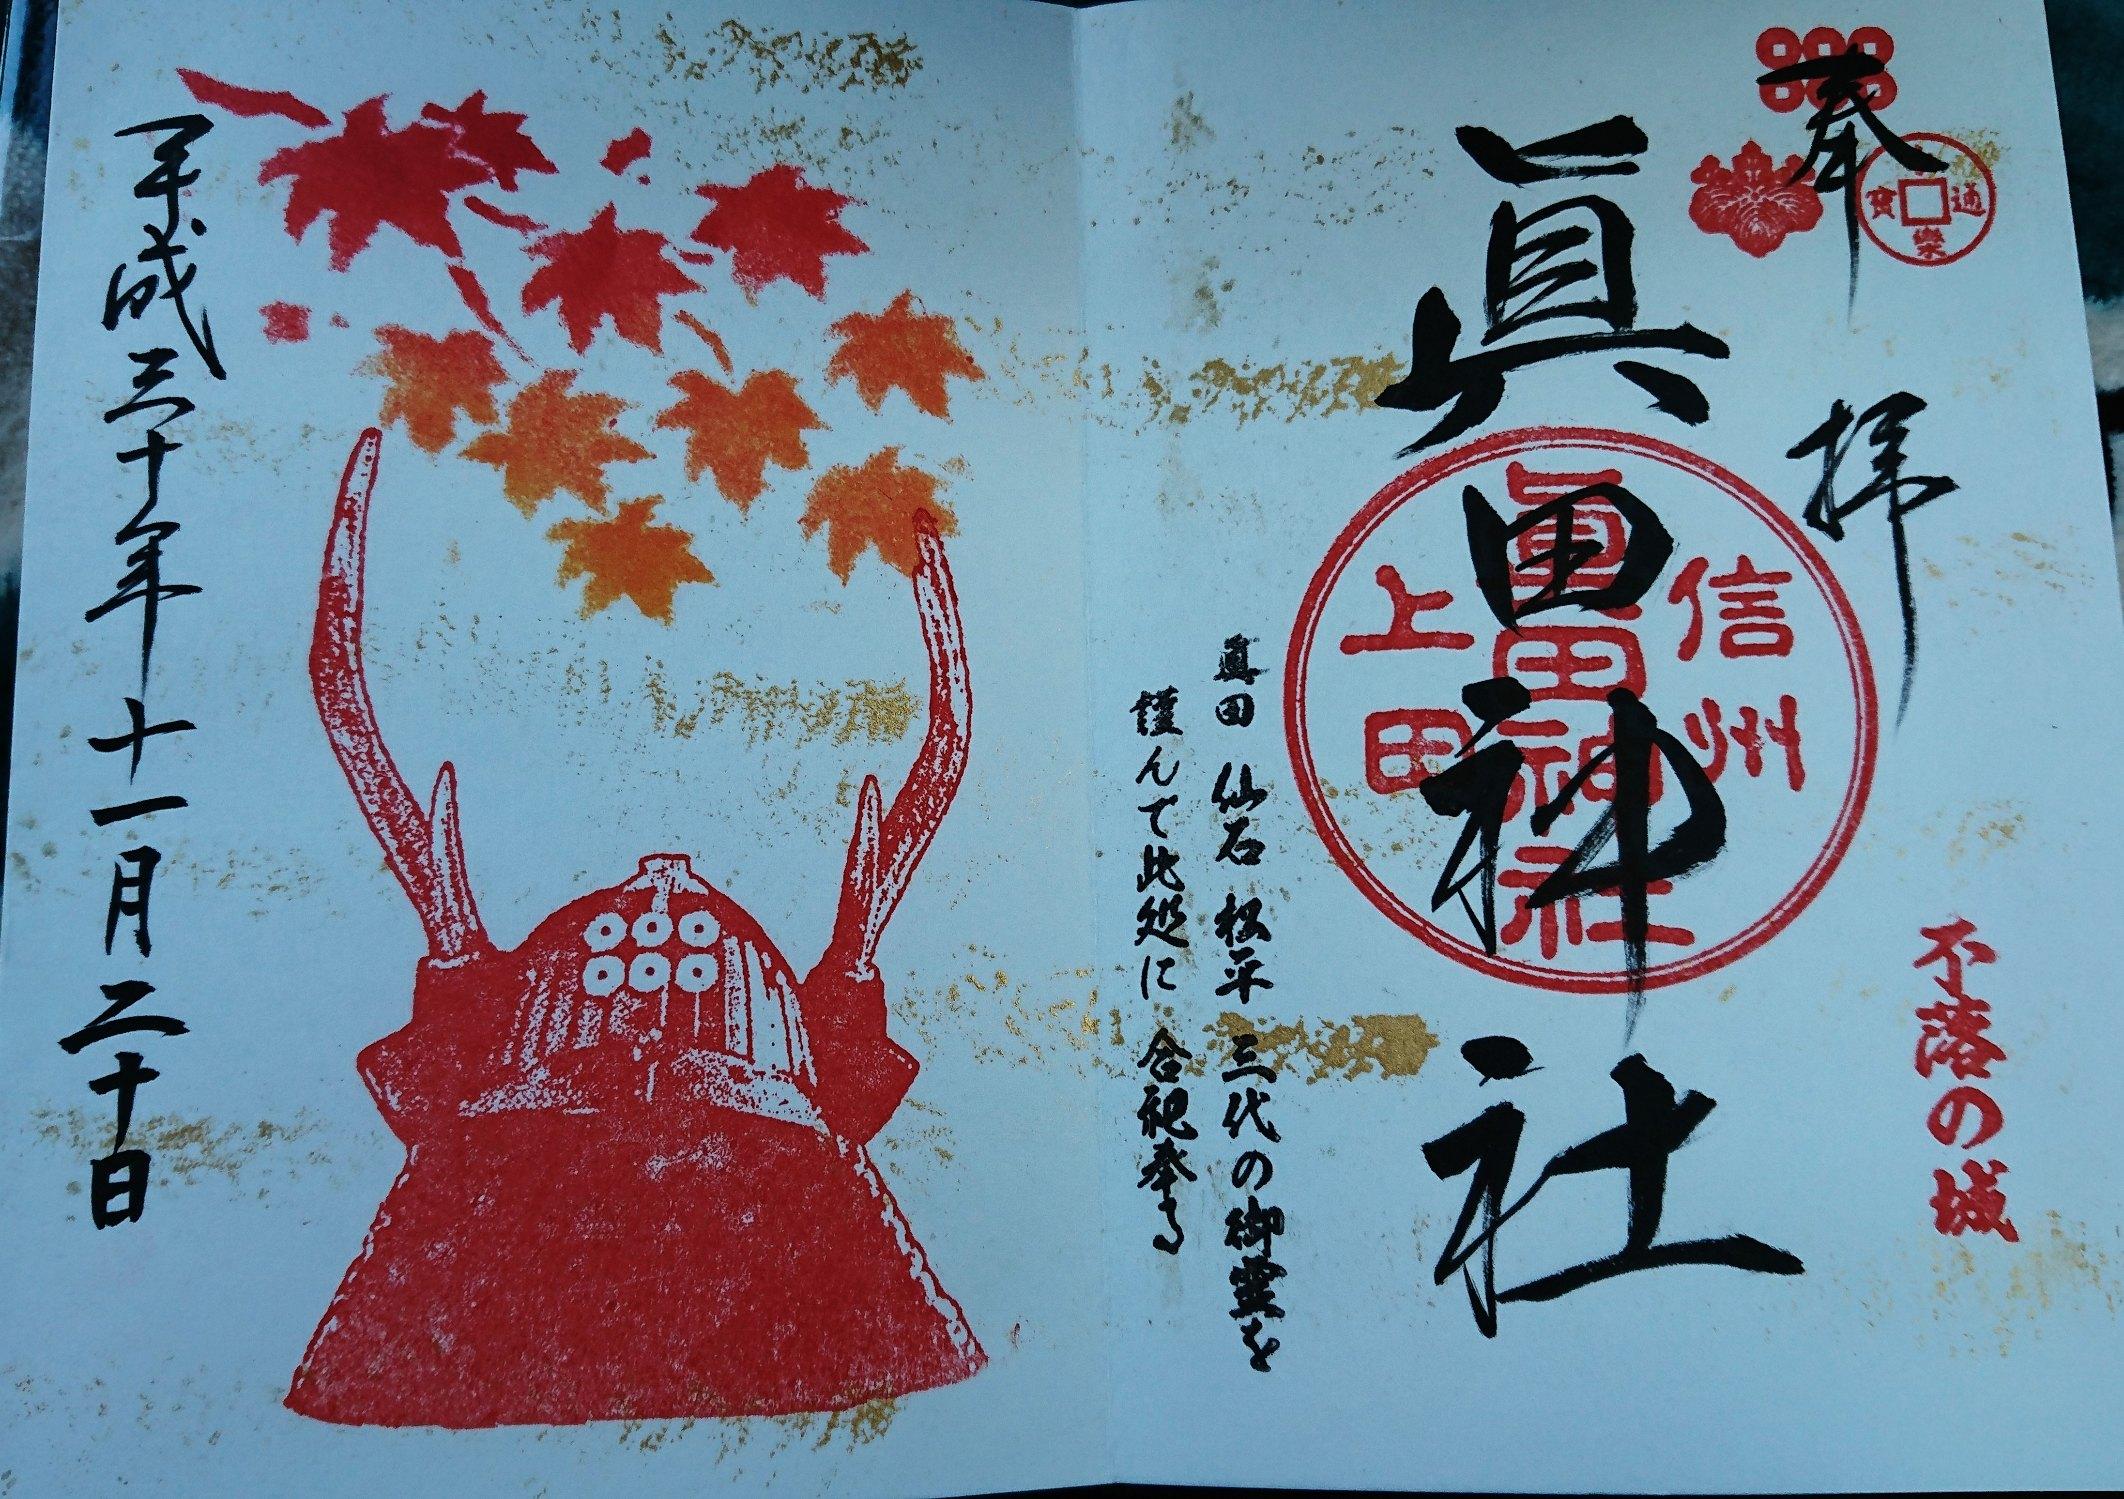 奉拝
通
寳
樂
不落の城
眞田神社
信州
眞田神社
上田
眞田 仙石 松平 三代の御霊を
謹んで此処に 合祀奉る
平成三十年十一月二十日